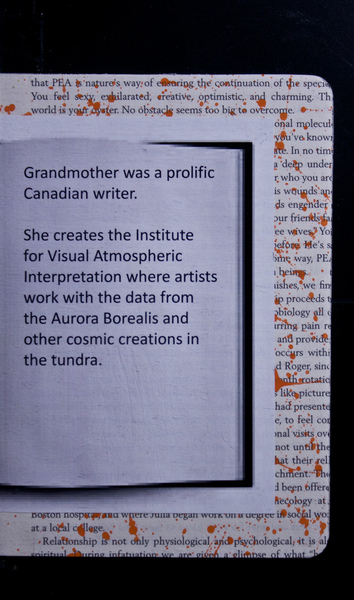 that PEA is nature's way of ensuring the continuation of the specie
You feel sexy, exhilarated, creative, optimistic, and charming. Th
world is your oyster. No obstacle seems too big to overcome.
onal molecul
you've known
ate. In no tim
a deep under
r who you are
is wounds an
ds engender
our friends fa
ee wives." Yo
before. He's s
ome way, PE
Grandmother was a prolific
Canadian writer.
She creates the Institute
for Visual Atmospheric
Interpretation where artists
work with the data from
the Aurora Borealis and
other cosmic creations in
the tundra.
being
ishes, we fin
ip proceeds t
obiology all
rring pain re
and provide
occurs withi
d Roger, sinc
anth rotatio
s like picture
had presente
e, to feel con
nal visits ove
not until the
at their rel
chment. The
d been offere
aecology at
Boston hospital and where Julia began work on a degree in social wo
at a local college.
Relationship is not only physiological and psychological, it is al
spiritual. During infatuation we are given a glimpse of what